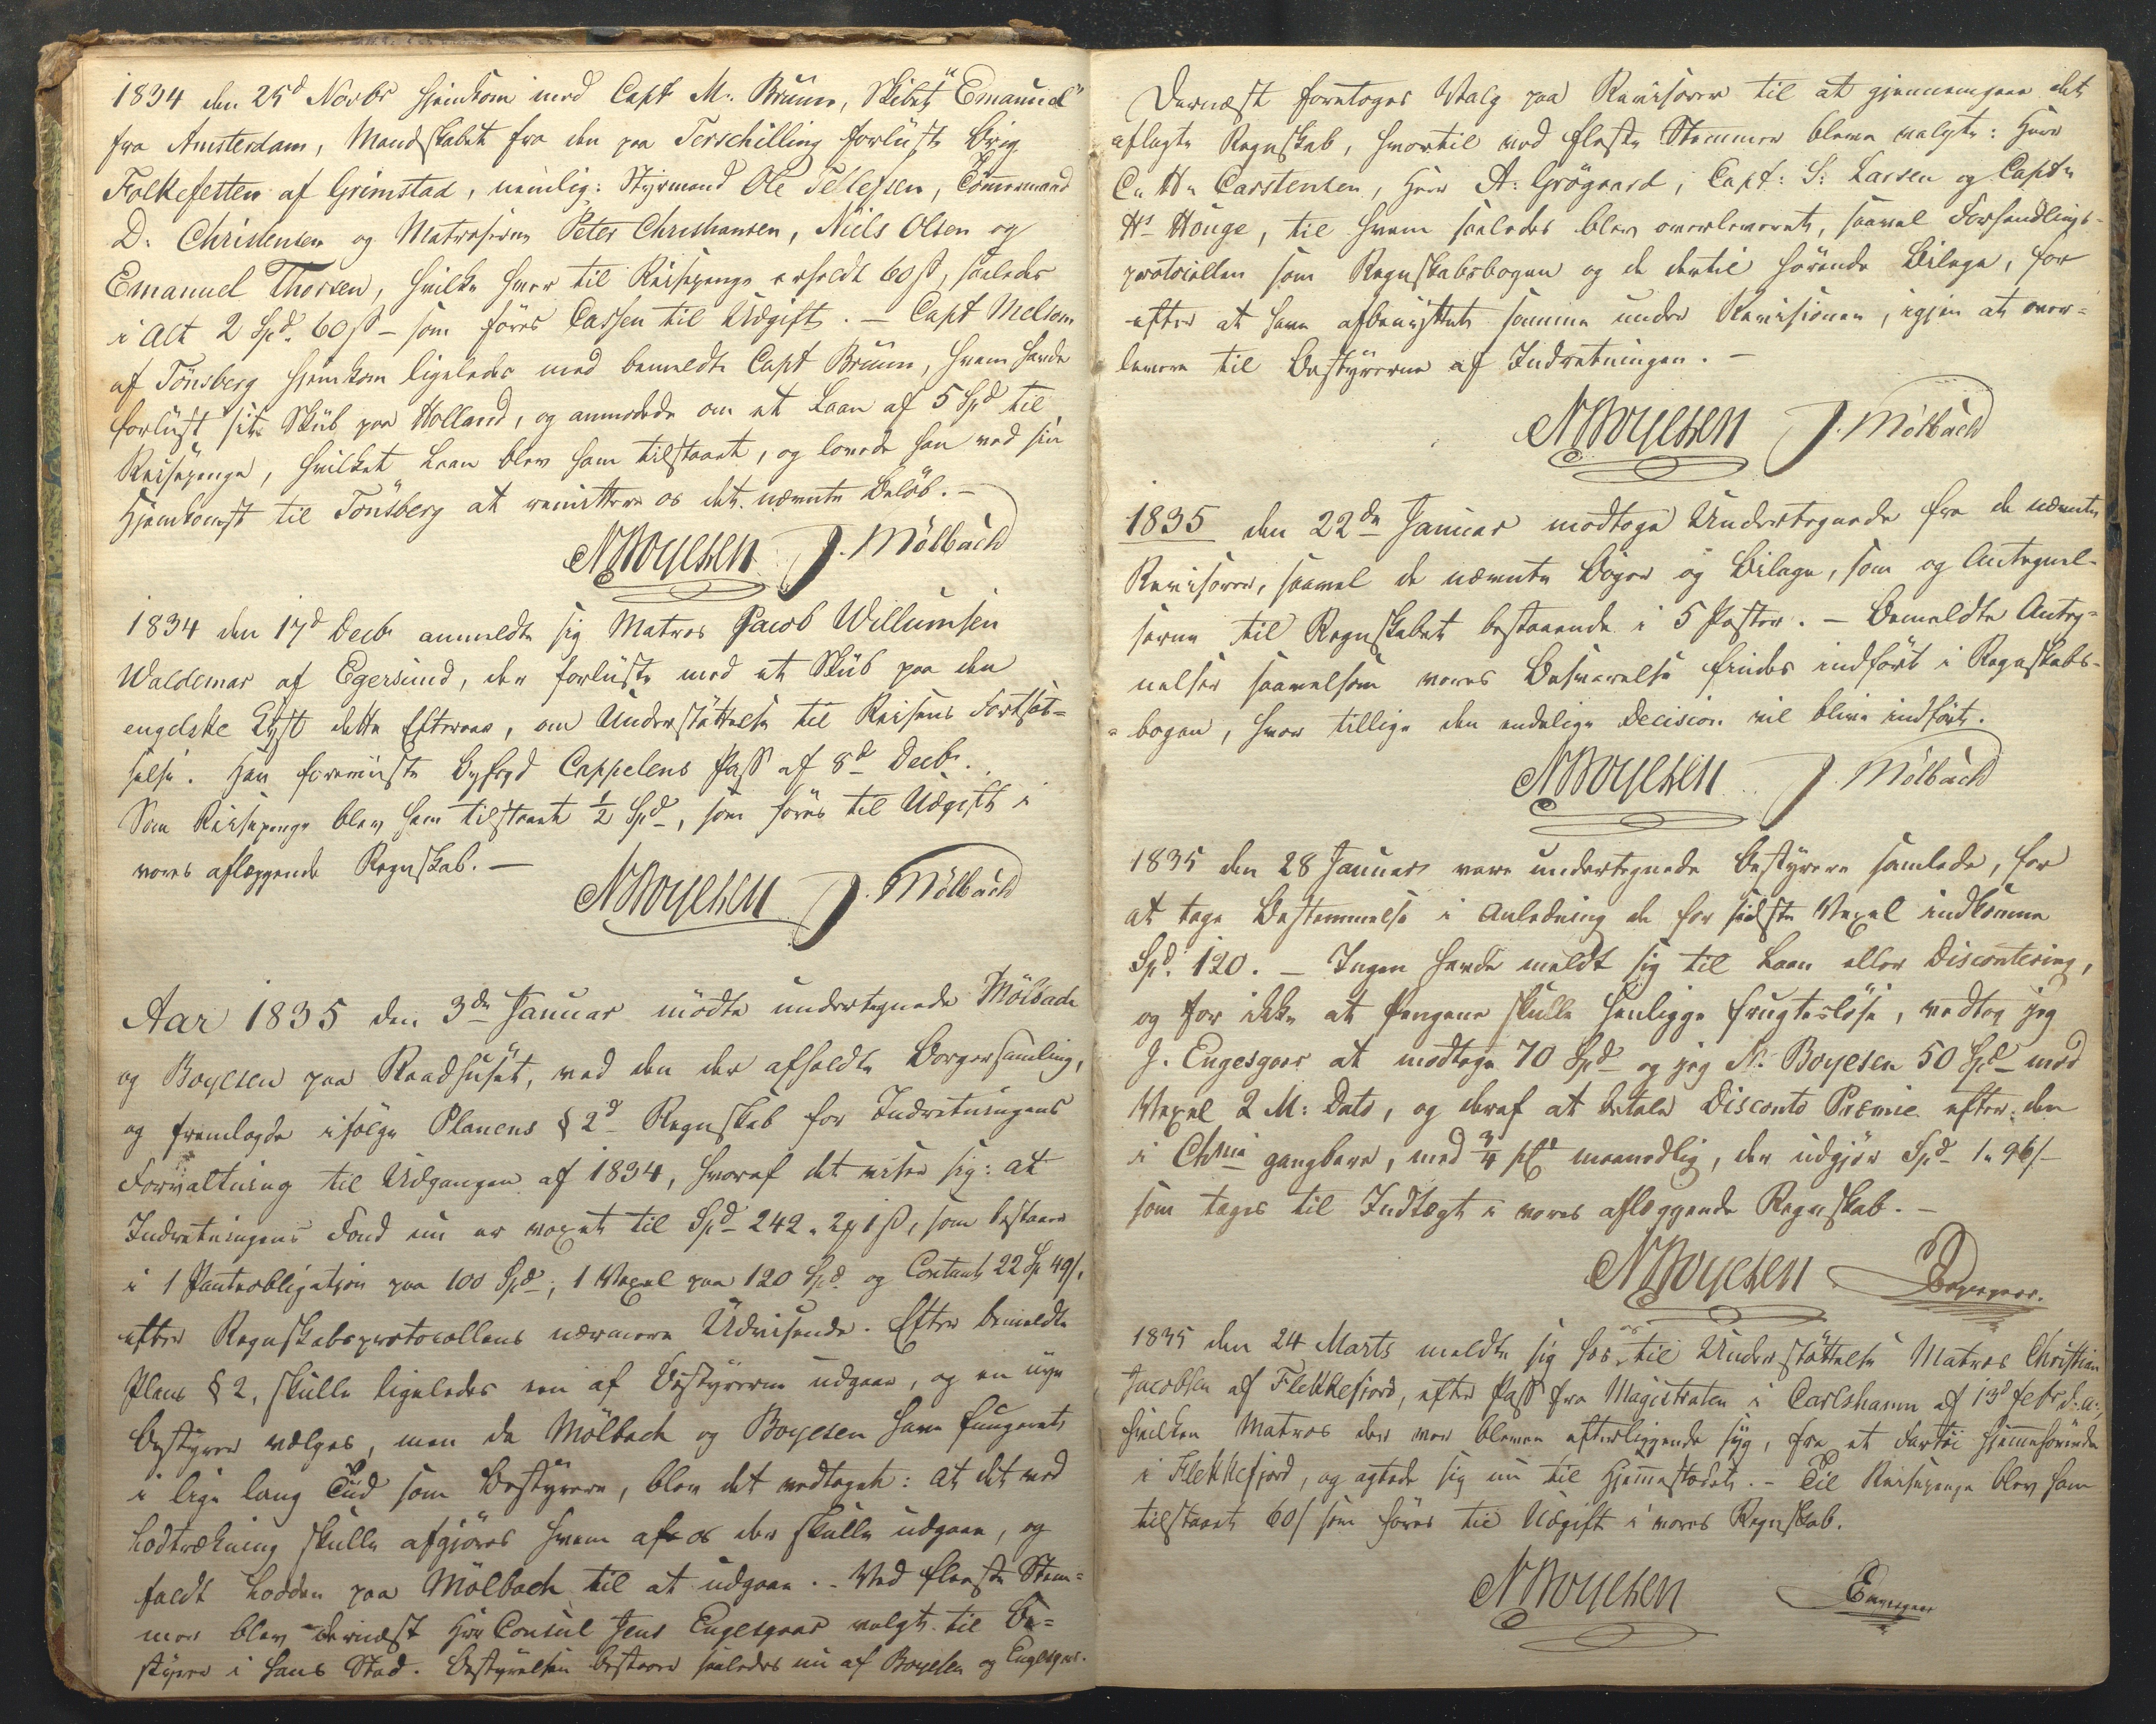 1834 den 25d Novbr hjemkom med Capt M. Bruun, Skibet "Emanuel"
fra Amsterdam, Mandskabet fra den paa Terschilling forliste Brig
Folkefesten af Grimstad, nemlig: Styrmand Ole Tellefsen, Tømmermand
D. Christensen og Matroserne Peter Christiansen, Niels Olsen og
Emanuel Thorsen, hvilke hver til Reisepenge erholdt 60 ß, saaledes
i Alt 2 Spd. 60 ß – som føres Cassen til Udgift. – Capt Melsom
af Tönsberg hjemkom ligeledes med bemeldte Capt Bruun, hvem havde
forlist sit Skib paa Holland, og anmodede om et Laan af 5 Spd til
Reisepenge, hvilket Laan blev ham tilstaaet, og lovede han ved sin
Hjemkomst til Tönsberg at remittere os det nævnte Beløb. –
N Boyesen J. Mölbach
1834 den 17d Decbr anmeldte sig Matros Jacob Willumsen
Waldemar af Egersund, der forliste med et Skib paa den
engelske Kyst dette Efteraar, om Understøttelse til Reisens Fortsæt=
telse. Han foreviiste Byfogd Cappelens Pass af 8d Decbr.
Som Reisepenge blev ham tilstaaet ½ Spd, som føres til Udgift i
vores aflæggende Regnskab. –
N Boyesen J. Mölbach
Aar 1835 den 3die Januar mödte undertegnede Mölbach
og Boyesen paa Raadhuset, ved den der afholdte Borgersamling,
og fremlagde ifølge Planens § 2d Regnskab for Indretningens
Forvaltning til Udgangen af 1834, hvoraf det viser sig: at
Indretningens Fond nu er voxet til Spd 242 „ 2 ɱ 1 ß, som bestaaer
i 1 Panteobligation paa 100 Spd, 1 Vexel paa 120 Spd og Contant 22 Sp 49 ß.
efter Regnskabsprotocollens nærmere Udvisende. Efter bemeldte
Plans § 2, skulle ligeledes een af Bestyrerne udgaae, og en nye
Bestyrer vælges, men da Mölbach og Boyesen have fungeret
i lige lang Tid som Bestyrere, blev det vedtaget: at det ved
Lodtrækning skulle afgjøres hvem af os der skulle udgaae, og
faldt Lodden paa Mölbach til at udgaae. – Ved fleeste Stem=
mer blev dernæst Hr Consul Jens Engesgaar valgt til Be=
styrer i hans Sted. Bestyrelsen bestaaer saaledes nu af Boyesen og Engesgaar.
Dernæst foretoges Valg paa Revisorer til at gjennemgaae det
aflagte Regnskab, hvortil ved fleste Stemmer bleve valgte: Herr
C. H. Carstensen, Herr A: Grögaard, Capt: S: Larsen og Captn
Hs Houge, til hvem saaledes blev overleveret, saavel Forhandlings-
protocollen som Regnskabsbogen og de dertil hørende Bilage, for
efter at have afbenyttet samme under Revisionen, igjen at over=
levere til Bestyrerne af Indretningen. –
N Boyesen J. Mölbach
1835 den 22de Januar modtoge Undertegnede fra de nævnte
Revisorer, saavel de nævnte Bøger og Bilage, som og Antegnel-
serne til Regnskabet bestaaende i 5 Poster. – Bemeldte Anteg=
nelser saavelsom vores Besvarelse findes indført i Regnskabs-
=bogen, hvor tillige den endelige Decision vil blive indført.
N Boyesen J. Mölbach
1835 den 28 Januar vare undertegnede Bestyrere samlede, for
at tage Bestemmelse i Anledning de for sidste Vexel indkomne
Spd. 120. – Ingen havde meldt sig til Laan eller Discontering,
og for ikke at Pengene skulle henligge frugtesløse, vedtog jeg
J. Engesgaar at modtage 70 Spd og jeg N. Boyesen 50 Spd mod
Vexel 2 M: Dato, og deraf at betale Disconto Præmie efter den
i Chnia gangbare, med ¾ pCt maanedlig, der udgjør Spd 1 „ 96 ß
som tages til Indtægt i vores aflæggende Regnskab. –
N Boyesen Engesgaar.
1835 den 24 Marts meldte sig hos os til Understøttelse Matros Christian
Jacobsen af Flekkefjord, efter Pass fra Magistraten i Carlshamn af 13d Febr. d. a:,
hvilken Matros der var bleven efterliggende syg, fra et Fartöi hjemmehørende
i Flekkefjord, og agtede sig nu til Hjemmestedet. – Til Reisepenge blev ham
tilstaaet 60 ß som føres til Udgift i vores Regnskab.
N Boyesen Engesgaar